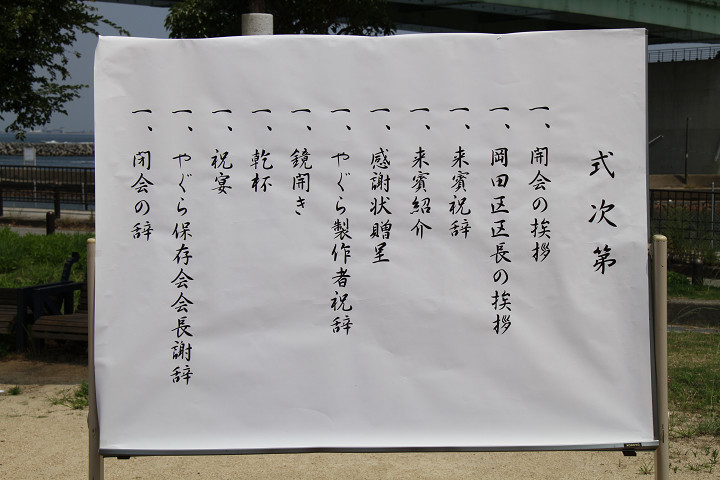 式次第
一、開会の挨拶
一、岡田区区長の挨拶
一、来賓祝辞
一、来賓紹介
一、感謝状贈呈
一、やぐら製作者祝辞
一、鏡開き
一、乾杯
一、祝宴
一、やぐら保存会会長謝辞
一、閉会の辞